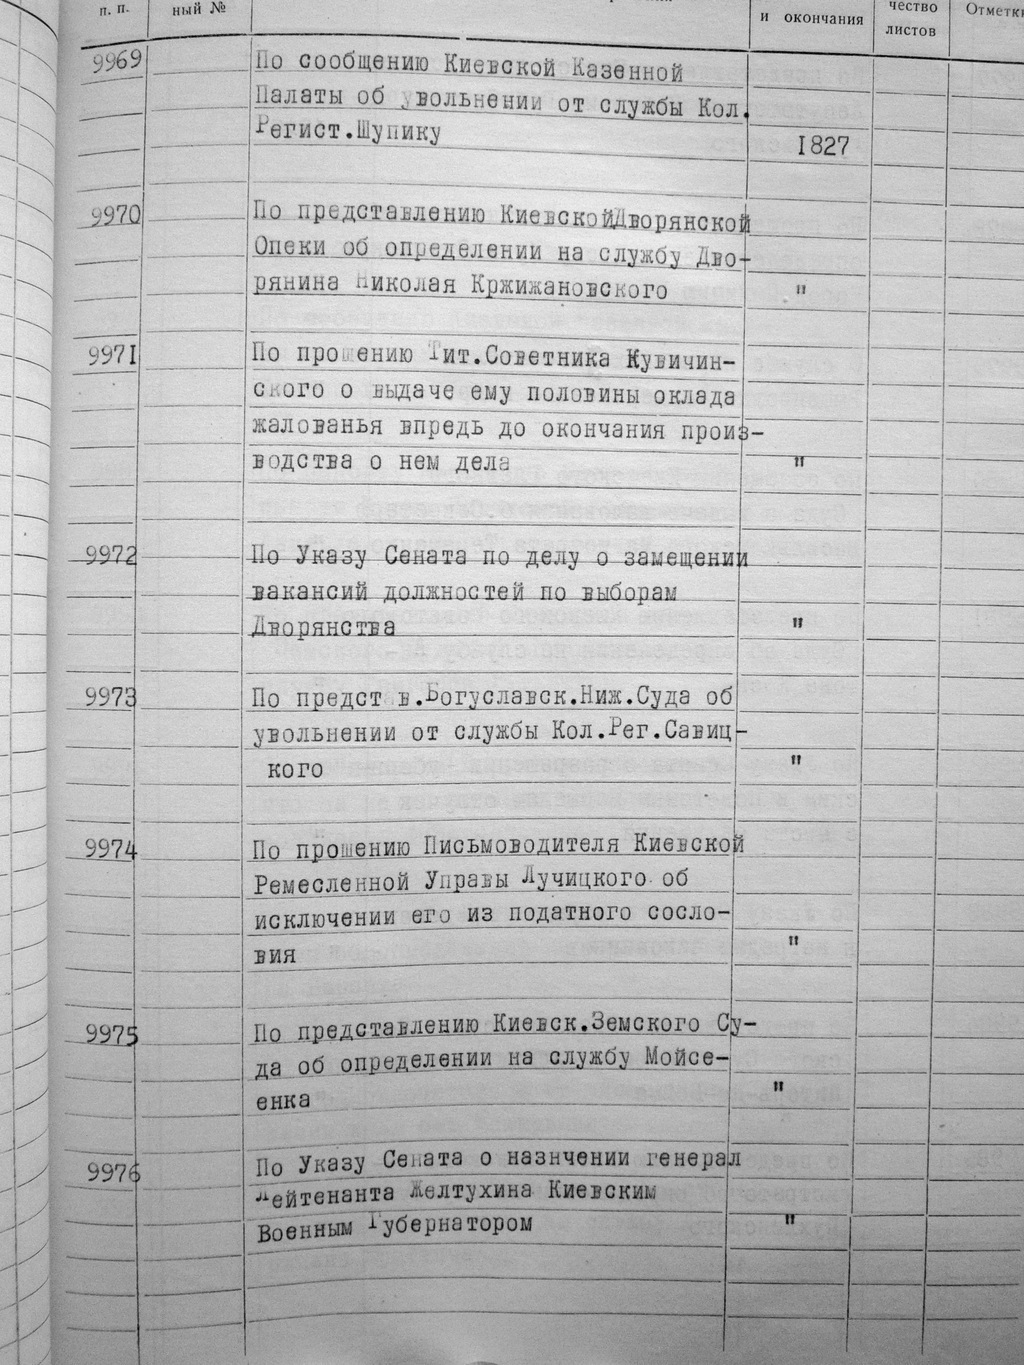 п. п.
ный №
и окончания
чество
листов
Отметки
9969
По сообщению Киевской Казенной
Палаты об увольнении от службы Кол.
Регист.Шупику
1827
9970
По представлению КиевскойДворянской
Опеки об определении на службу Дво-
рянина Николая Кржижановского
"
9971
По прошению Тит.Советника Кувичин-
ского о выдаче ему половины оклада
жалованья впредь до окончания произ-
водства о нем дела
"
9972
По Указу Сената по делу о замещении
вакансий должностей по выборам
Дворянства
"
9973
По предст в.Богуславск.Ниж.Суда об
увольнении от службы Кол.Рег.Савиц-
кого
"
9974
По прошению Письмоводителя Киевской
Ремесленной Управы Лучицкого об
исключении его из податного сосло-
вия
"
9975
По представлению Киевск.Земского Су-
да об определении на службу Мойсе-
енка
"
9976
По Указу Сената о назнчении генерал
Лейтенанта Желтухина Киевским
Военным Губернатором
"